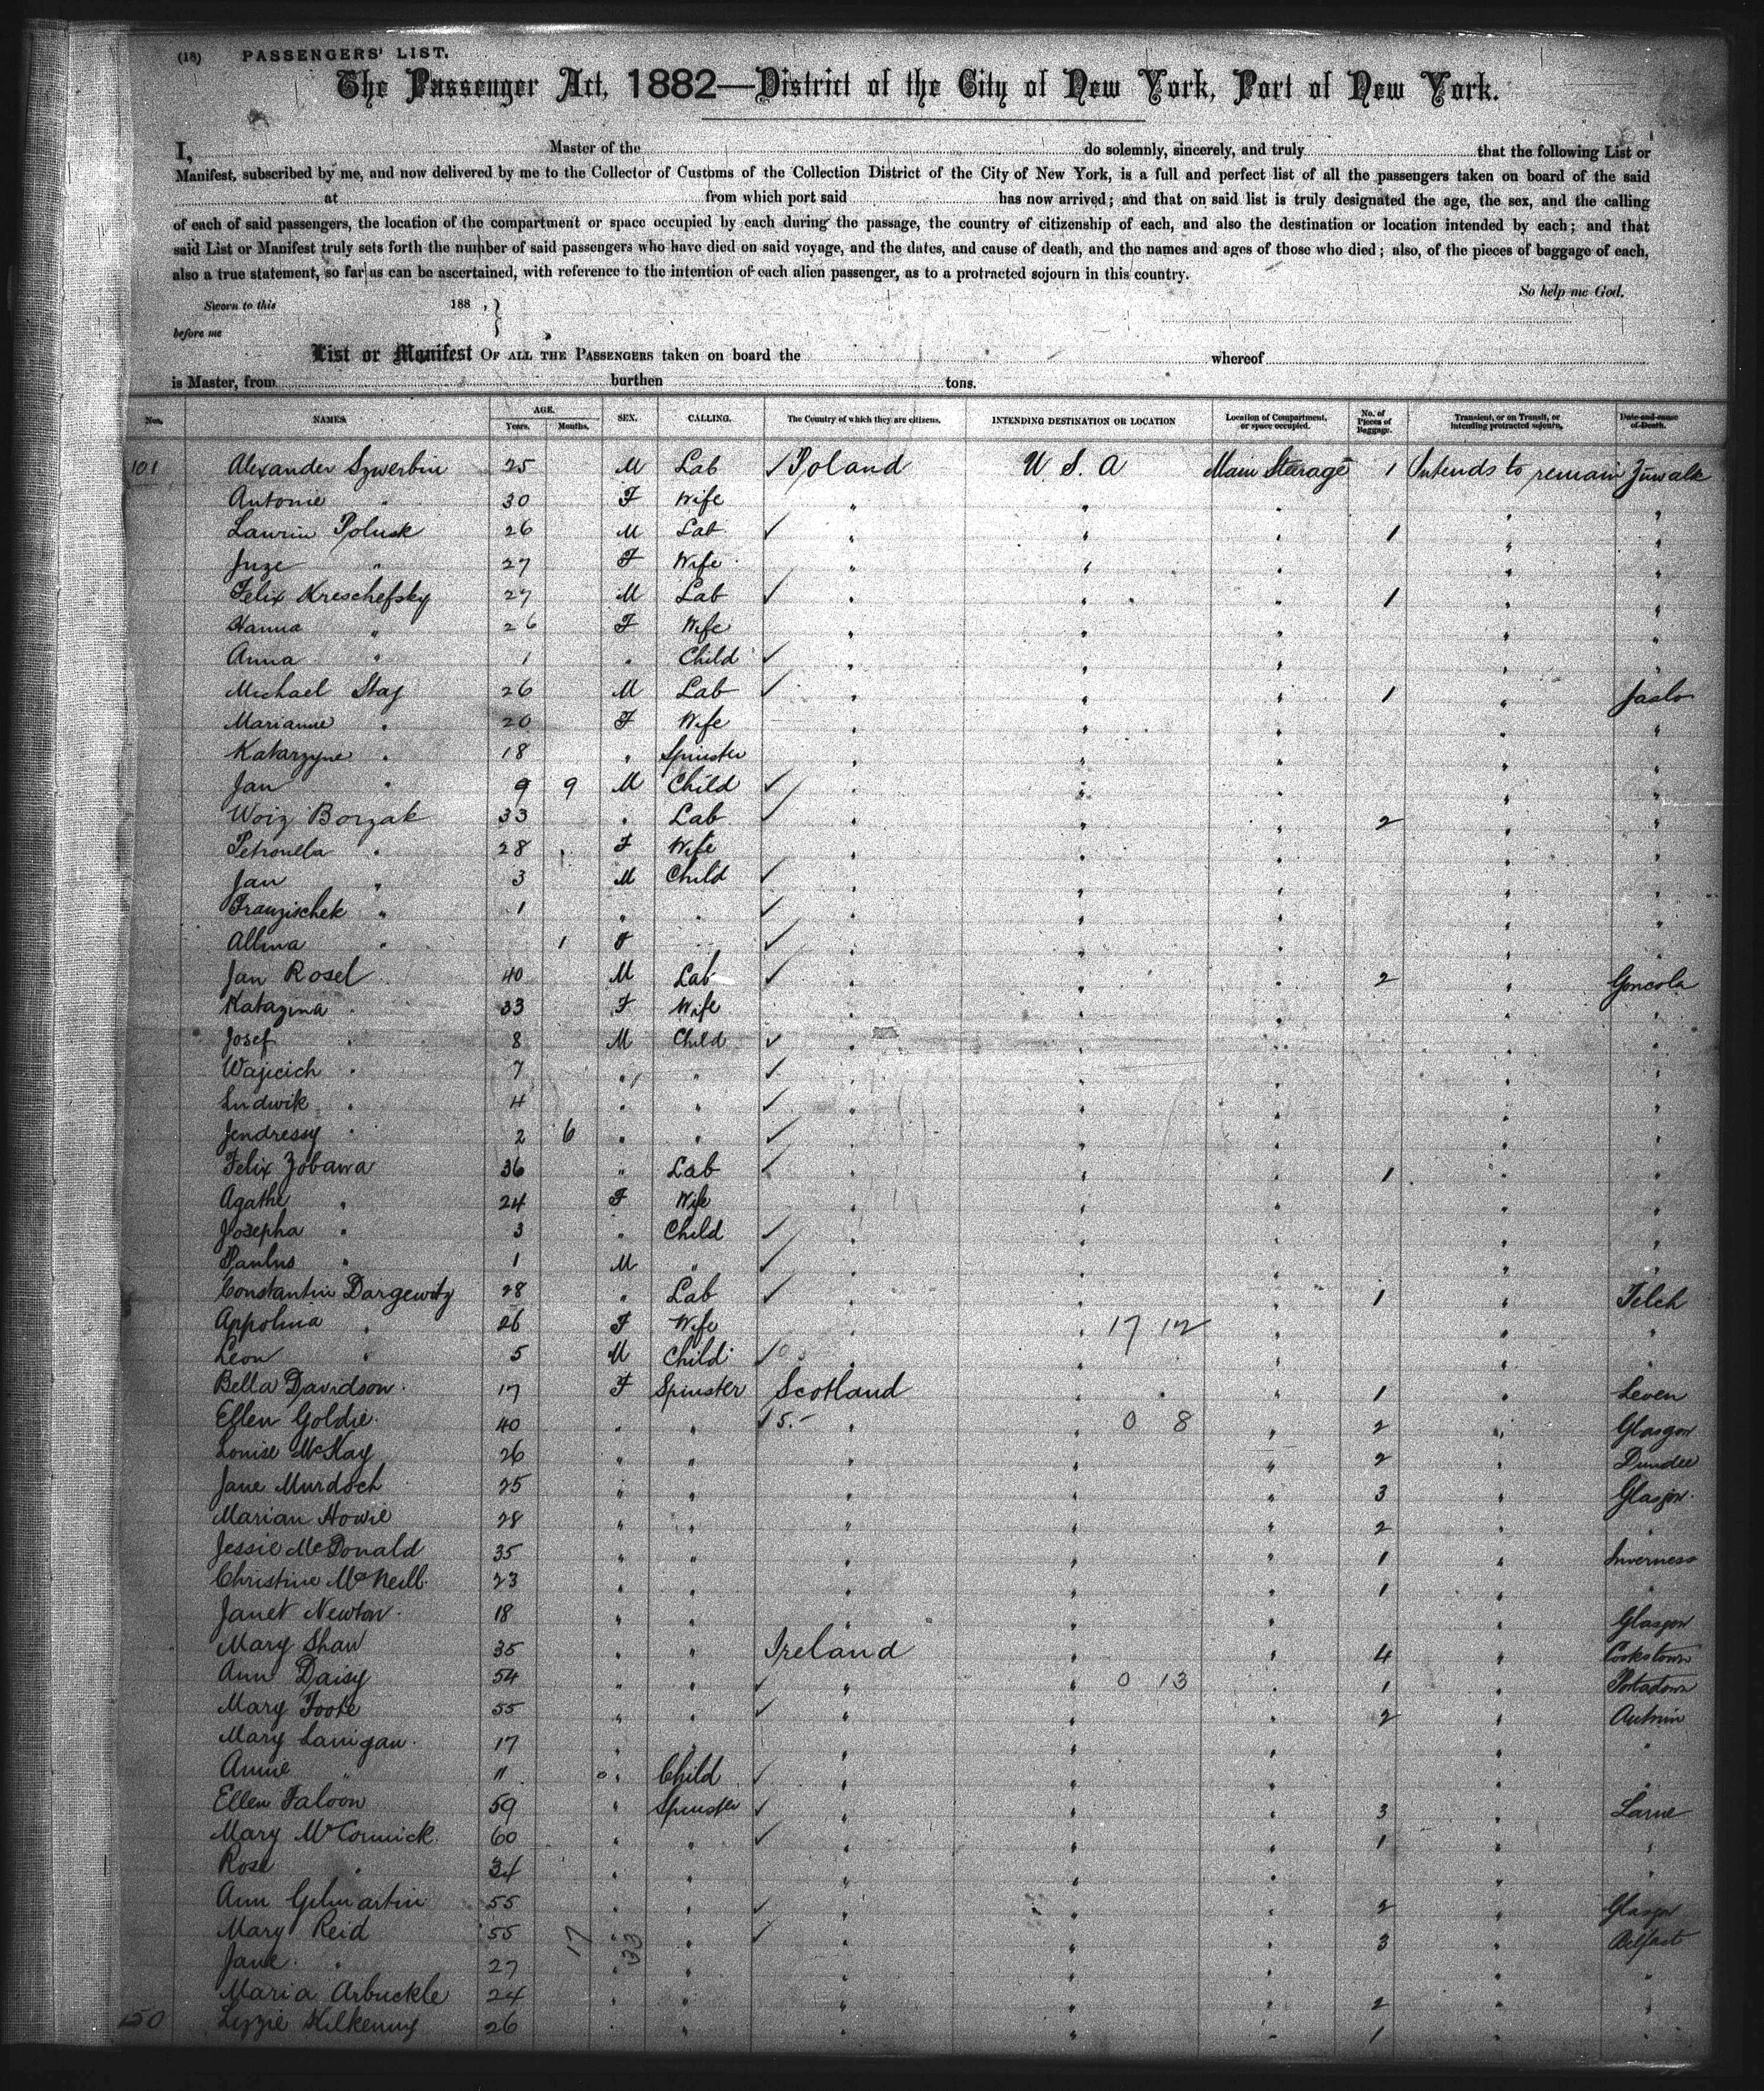 (18) PASSENGERS' LIST.
The Passenger Act, 1882—District of the City of New York, Port of New York.
I, Master of the do solemnly, sincerely, and truly that the following List or
Manifest, subscribed by me, and now delivered by me to the Collector of Customs of the Collection District of the City of New York, is a full and perfect list of all the passengers taken on board of the said
at from which port said has now arrived; and that on said list is truly designated the age, the sex, and the calling
of each of said passengers, the location of the compartment or space occupied by each during the passage, the country of citizenship of each, and also the destination or location intended by each; and that
said List or Manifest truly sets forth the number of said passengers who have died on said voyage, and the dates, and cause of death, and the names and ages of those who died; also, of the pieces of baggage of each,
also a true statement, so far as can be ascertained, with reference to the intention of each alien passenger, as to a protracted sojourn in this country.
So help me God.
Sworn to this 188 , }
before me
List or Manifest OF ALL THE PASSENGERS taken on board the whereof
is Master, from burthen tons.
Nos. NAMES AGE. Years. Months. SEX. CALLING. The Country of which they are citizens. INTENDING DESTINATION OR LOCATION Location of Compartment, or space occupied. No. of Pieces of Baggage. Transient, or on Transit, or intending protracted sojourn. Date and cause of Death.
101 Alexander Szwerbin 25 M Lab ✓ Poland U. S. A Main Steerage 1 Intends to remain Zuwalk
Antonie " 30 F Wife " " " " "
Laurin Polusk 26 M Lab ✓ " " " 1 " "
Juze " 27 F Wife " " " " "
Felix Kreschefsky 27 M Lab ✓ " " " 1 " "
Hanna " 26 F Wife " " " " "
Anna " 1 " Child ✓ " " " " "
Michael Staj 26 M Lab ✓ " " " 1 " Jaslo
Marianne " 20 F Wife " " " " "
Katarzyne " 18 " Spinster " " " " "
Jan " 9 9 M Child ✓ " " " " "
Woiz Borzak 33 " Lab ✓ " " " 2 " "
Petronella " 28 F Wife " " " " "
Jan " 3 M Child ✓ " " " " "
Franzischek " 1 " " ✓ " " " " "
Allina " 1 F ✓ " " " " "
Jan Rosel 40 M Lab ✓ " " " 2 " Goncola
Katazina " 33 F Wife " " " " "
Josef " 8 M Child ✓ " " " " "
Wajicich " 7 " " ✓ " " " " "
Ludwik " 4 " " ✓ " " " " "
Jendressy " 2 6 " " ✓ " " " " "
Felix Zobawa 36 " Lab ✓ " " " 1 " "
Agathe " 24 F Wife " " " " "
Josepha " 3 " Child ✓ " " " " "
Paulus " 1 M " ✓ " " " " "
Constantin Dargewitz 28 " Lab ✓ " " " 1 " Telch
Appolina " 26 F Wife " 17 12 " " "
Leon " 5 M Child ✓ " " " " "
Bella Davidson 17 F Spinster Scotland " " 1 " Leven
Ellen Goldie 40 " " 15.- " " 0 8 " 2 " Glasgow
Louise McKay 26 " " " " " 2 " Dundee
Jane Murdoch 25 " " " " " 3 " Glasgow
Marian Howie 28 " " " " " 2 " "
Jessie McDonald 35 " " " " " 1 " Inverness
Christine McNeill 23 " " " " " 1 " "
Janet Newton 18 " " " " " " Glasgow
Mary Shaw 35 " " Ireland " " 4 " Cookstown
Ann Daisy 54 " " ✓ " " 0 13 " 1 " Portadown
Mary Foote 55 " " ✓ " " " 2 " Antrim
Mary Lanigan 17 " " " " " " "
Annie " 11 " Child ✓ " " " " "
Ellen Faloon 59 " Spinster ✓ " " " 3 " Larne
Mary McCormick 60 " " ✓ " " " 1 " "
Rose " 34 " " " " " " "
Ann Gilmartin 55 " " ✓ " " " 2 " Glasgow
Mary Reid 55 17 " 33 " ✓ " " " 3 " Belfast
Jane " 27 " " " " " " "
Maria Arbuckle 24 " " " " " 2 " "
150 Lizzie Kilkenny 26 " " " " " 1 " "